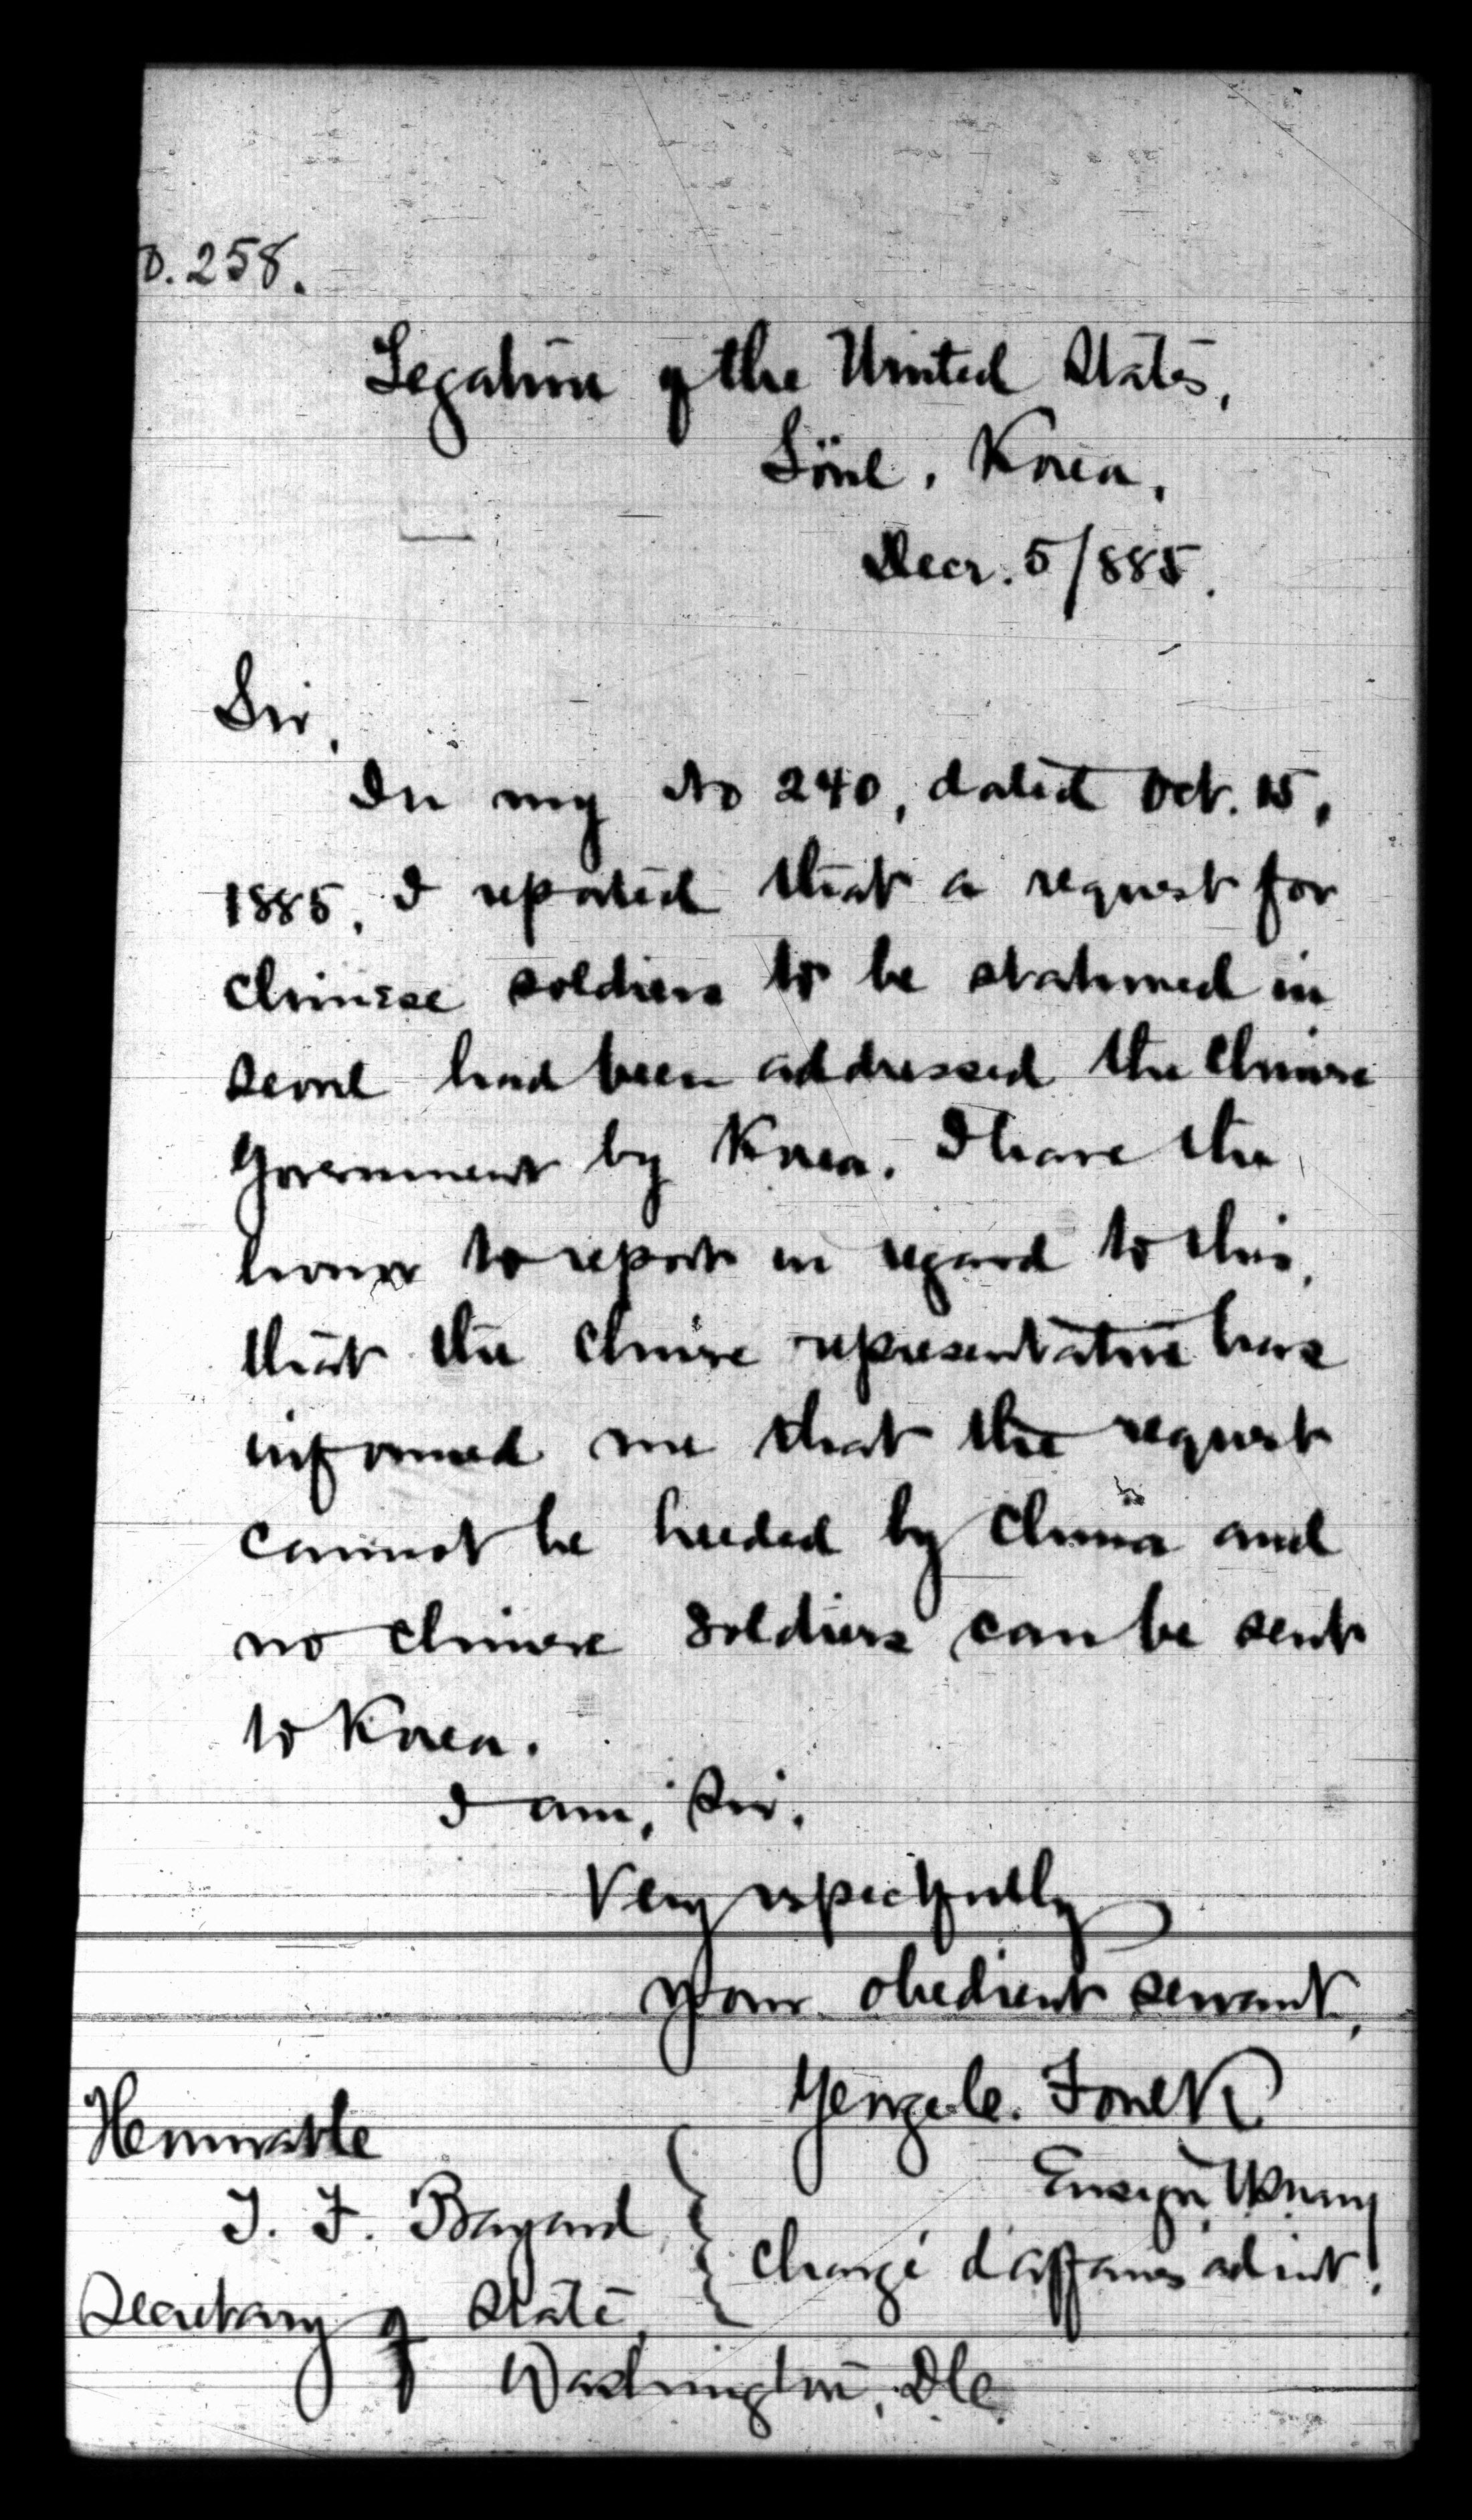 o. 258.
Legation of the United States,
Söul, Korea,
Decr. 5/885.
Sir,
In my No 240, dated Oct. 15,
1885, I reported that a request for
Chinese soldiers to be stationed in
Seoul had been addressed the Chinese
Government by Korea. I have the
honor to report in regard to this,
that the Chinese representative has
informed me that the request
cannot be heeded by China and
no Chinese soldiers can be sent
to Korea.
I am, Sir,
Very respectfully
your obedient servant,
George C. Foulk
Ensign, U.S. Navy
Chargé d'affaires ad int.
Honorable
T. F. Bayard
Secretary of State,
Washington, D.C.